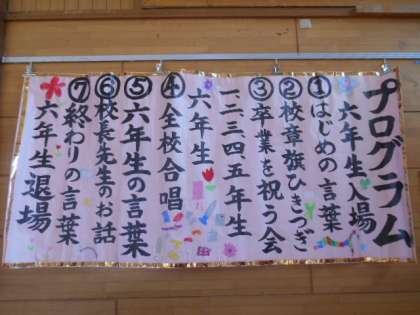 プログラム
六年生入場
①はじめの言葉
②校章旗ひきつぎ
③卒業を祝う会
一、二、三、四、五年生
六年生
④全校合唱
⑤六年生の言葉
⑥校長先生のお話
⑦終わりの言葉
六年生退場